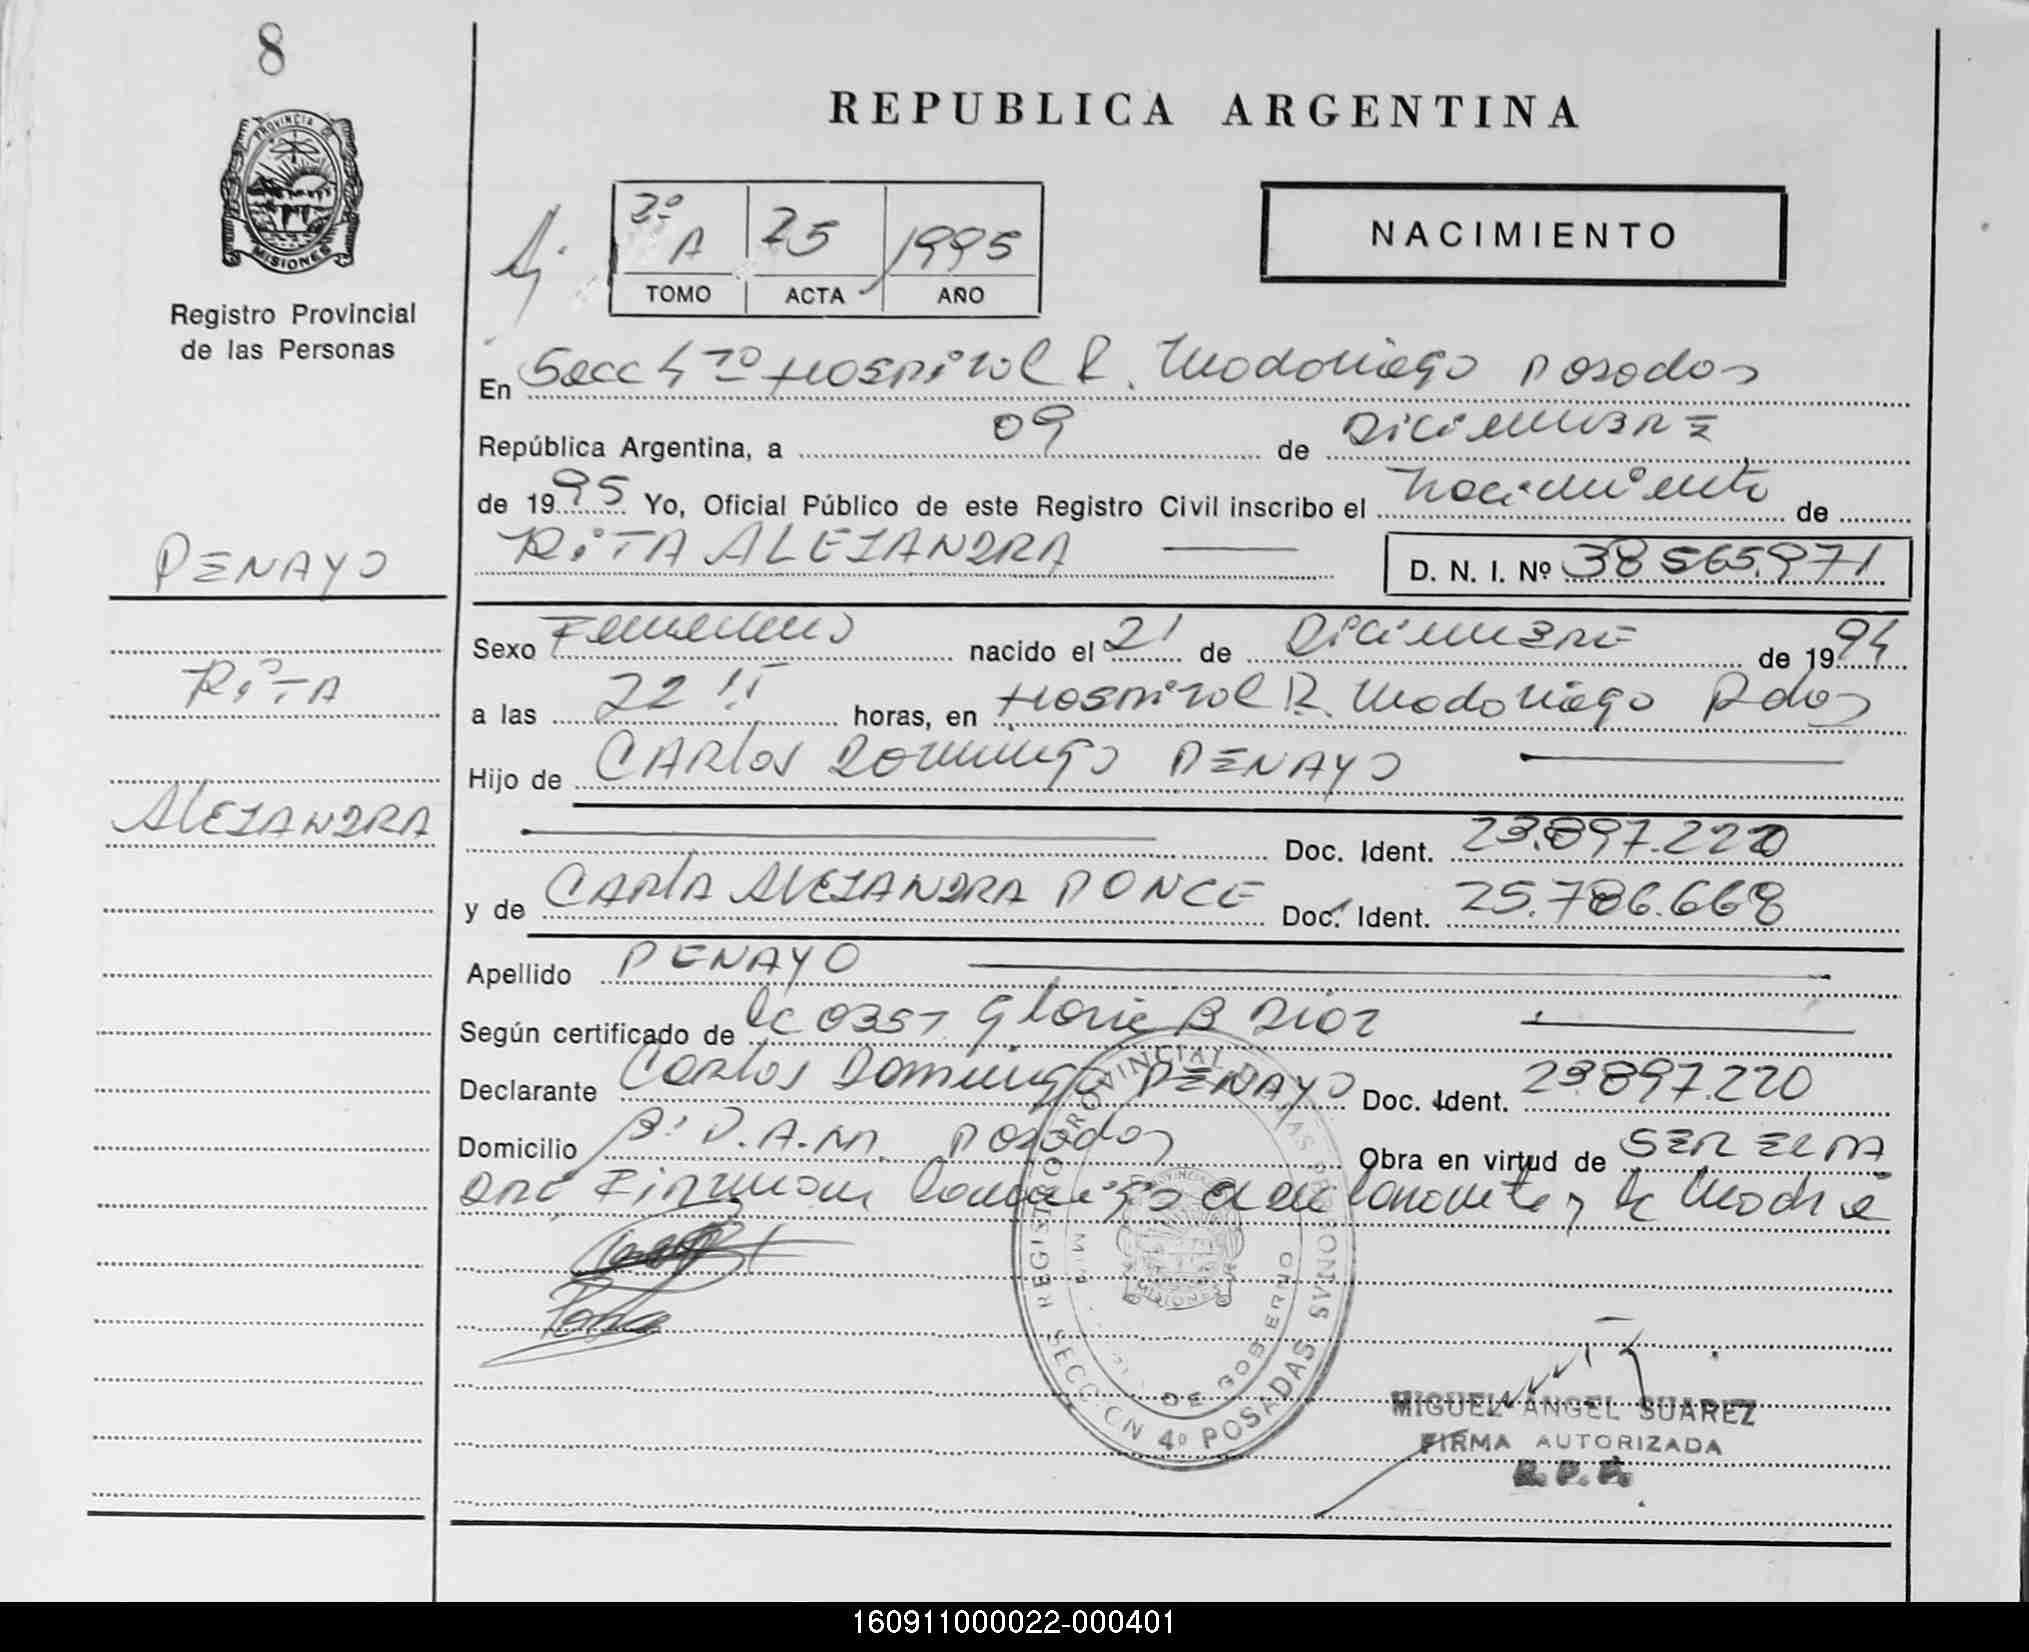 8
PROVINCIA DE
MISIONES
Registro Provincial
de las Personas
REPUBLICA ARGENTINA
NACIMIENTO
2º A 25 1995
TOMO ACTA AÑO
En Secc 4ta Hospital R. Madariaga Posadas
República Argentina, a 09 de Diciembre
de 1995 Yo, Oficial Público de este Registro Civil inscribo el Nacimiento de
RITA ALEJANDRA D. N. I. Nº 38.565.971
PENAYO
RITA
ALEJANDRA
Sexo Femenino nacido el 21 de Diciembre de 1994
a las 22 horas, en Hospital R. Madariaga Pdas
Hijo de CARlos Domingo PENAYO
Doc. Ident. 23.897.220
y de CARlA AlEJANDRA PONCE Doc. Ident. 25.786.668
Apellido PENAYO
Según certificado de la 0357 Gloria B Diaz
Declarante Carlos Domingo PENAYO Doc. Ident. 23.897.220
Domicilio Bº P.A.M. Posadas Obra en virtud de SER El PA
DRE, Firman conmigo el declarante y la Madre
REGISTRO PROVINCIAL DE LAS PERSONAS
DE GOBIERNO
MISIONES
SECCION 4º POSADAS
MIGUEL ANGEL SUAREZ
FIRMA AUTORIZADA
R. P. P.
160911000022-000401